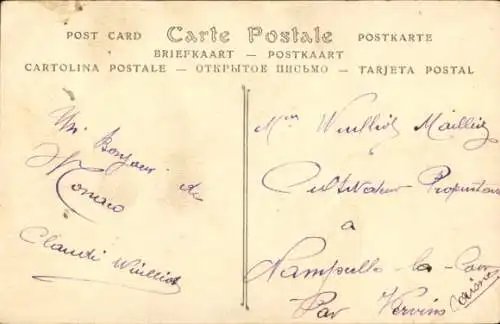 POST CARD Carte Postale POSTKARTE
BRIEFKAART — POSTKAART
CARTOLINA POSTALE — ОТКРЫТОЕ ПИСЬМО — TARJETA POSTAL
Un Bonjour de
Claudi Wuilliot
Mr Wuilliot Mailliet
Cultivateur Propriétaire
à
Nampcelle-la-Cour
Par Vervins (Aisne)